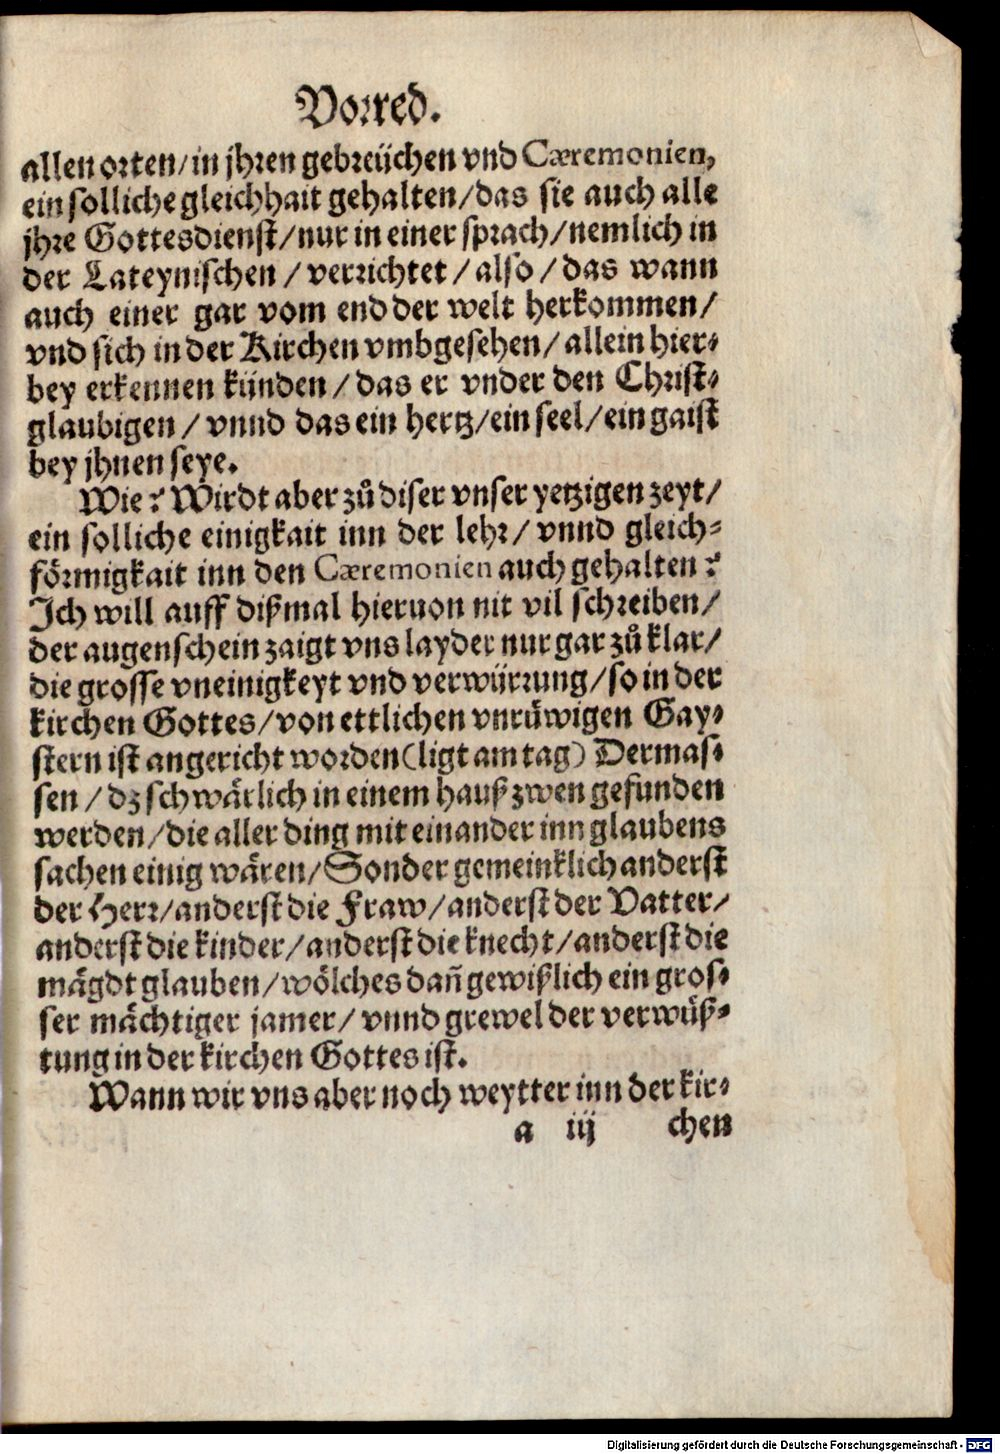 Vorred.
allen orten/ in jhren gebreüchen vnd Cæremonien,
ein solliche gleichhait gehalten/ das sie auch alle
jhre Gottesdienst/ nur in einer sprach/ nemlich in
der Lateynischen / verrichtet / also / das wann
auch einer gar vom end der welt herkommen/
vnd sich in der Kirchen vmbgesehen/ allein hier⸗
bey erkennen künden / das er vnder den Christ⸗
glaubigen / vnnd das ein hertz/ ein seel/ ein gaist
bey jhnen seye.
Wie? Wirdt aber zů diser vnser yetzigen zeyt/
ein solliche einigkait inn der lehr/ vnnd gleich⸗
förmigkait inn den Cæremonien auch gehalten?
Ich will auff dißmal hieruon nit vil schreiben/
der augenschein zaigt vns layder nur gar zů klar/
die grosse vneinigkeyt vnd verwürrung/ so in der
kirchen Gottes/ von ettlichen vnrüwigen Gay⸗
stern ist angericht worden (ligt am tag) Dermas⸗
sen / dz schwärlich in einem hauß zwen gefunden
werden/ die aller ding mit einander inn glaubens
sachen einig wären/ Sonder gemeinklich anderst
der Herr/ anderst die Fraw/ anderst der Vatter/
anderst die kinder/ anderst die knecht/ anderst die
mägdt glauben/ wölches dañ gewißlich ein gros⸗
ser mächtiger jamer/ vnnd grewel der verwüß⸗
tung in der kirchen Gottes ist.
Wann wir vns aber noch weytter inn der kir⸗
a iij chen
Digitalisierung gefördert durch die Deutsche Forschungsgemeinschaft - DFG